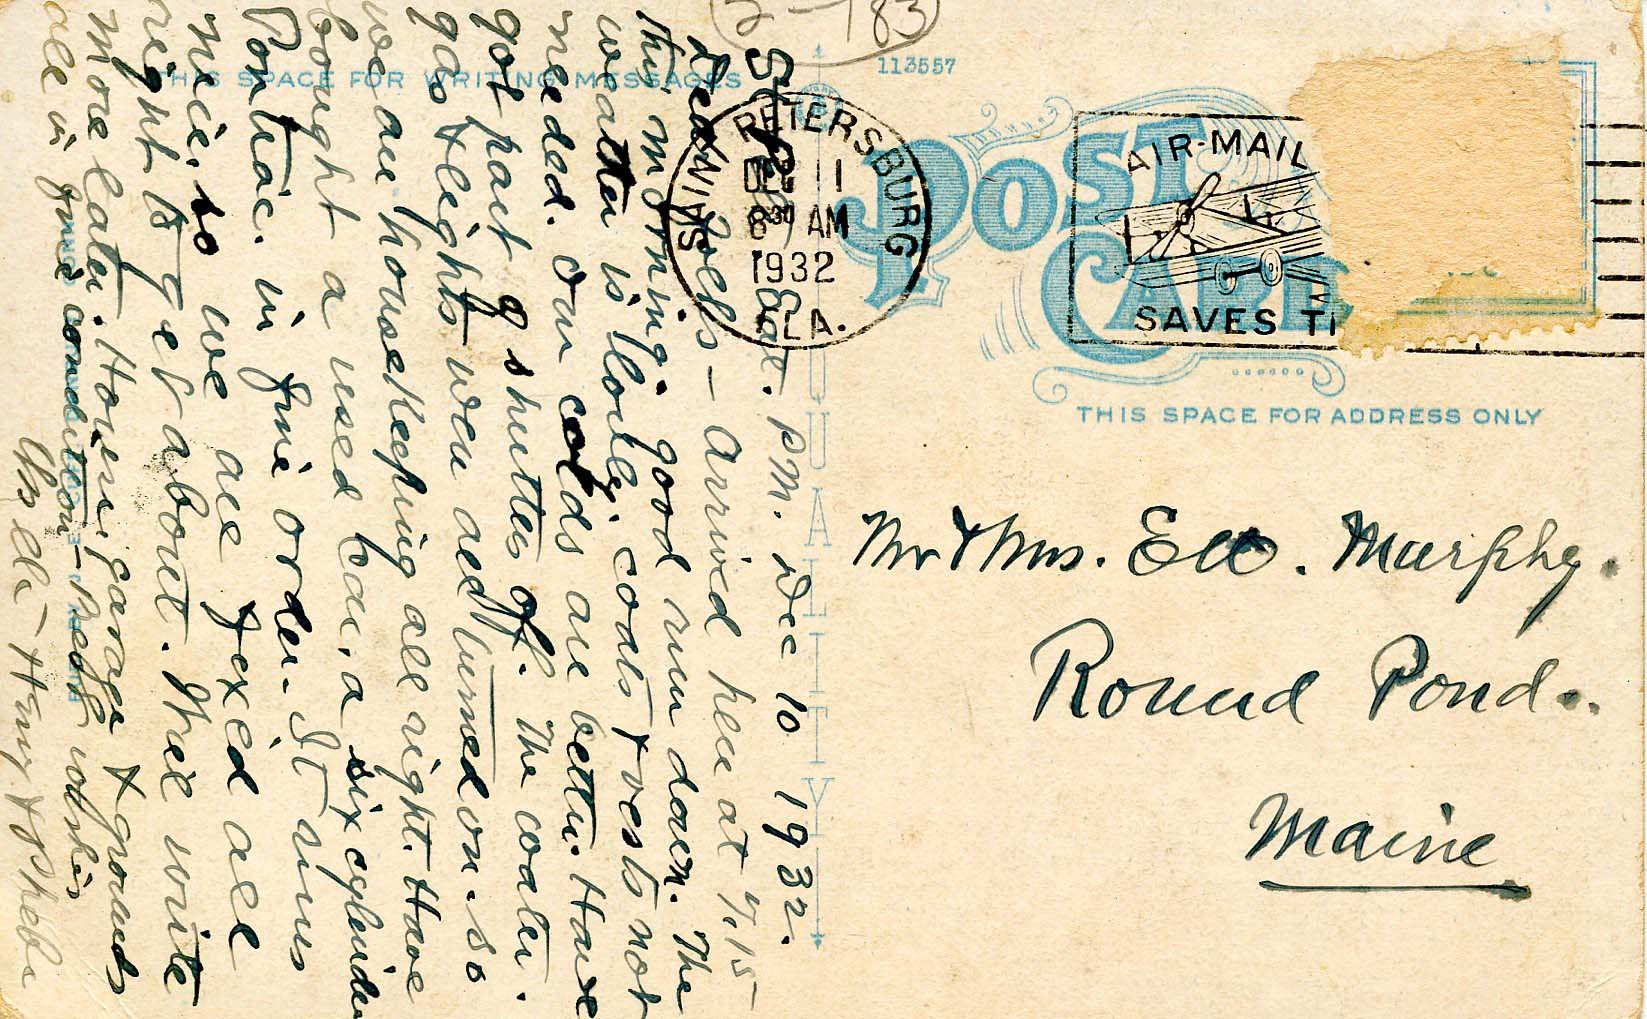 2-183
113557
THIS SPACE FOR WRITING MESSAGES
POST CARD
THIS SPACE FOR ADDRESS ONLY
SAINT PETERSBURG
DEC 11
8 30 AM
1932
FLA.
AIR-MAIL
SAVES TI
QUALITY
Mr & Mrs. Murphy.
Round Pond.
Maine
St. P Sat. PM. Dec 10 1932.
Dear Folks - Arrived here at 7,15
this morning. good run down. The
weather is lovely, coats & vests not
needed. Our colds are better. Have
got part of shutters off. The water.
gas & lights were all turned on. so
we are housekeeping all right. Have
bought a used car, a six cylinder
Pontiac. in fine order. It runs
nice. so we are fixed all
right to get about. Will write
more later. House, garage & grounds
all in fine condition - Best wishes
Uncle - Harry & Phebe